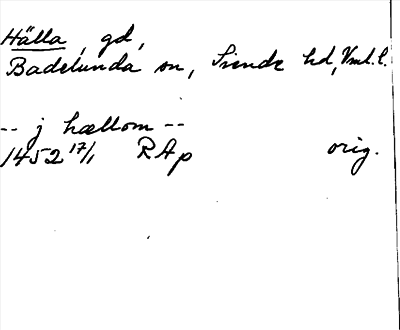 Hälla, gd,
Badelunda sn, Siende hd, Vml. l.
-- j hællom --
1452 17/1 RAp orig.